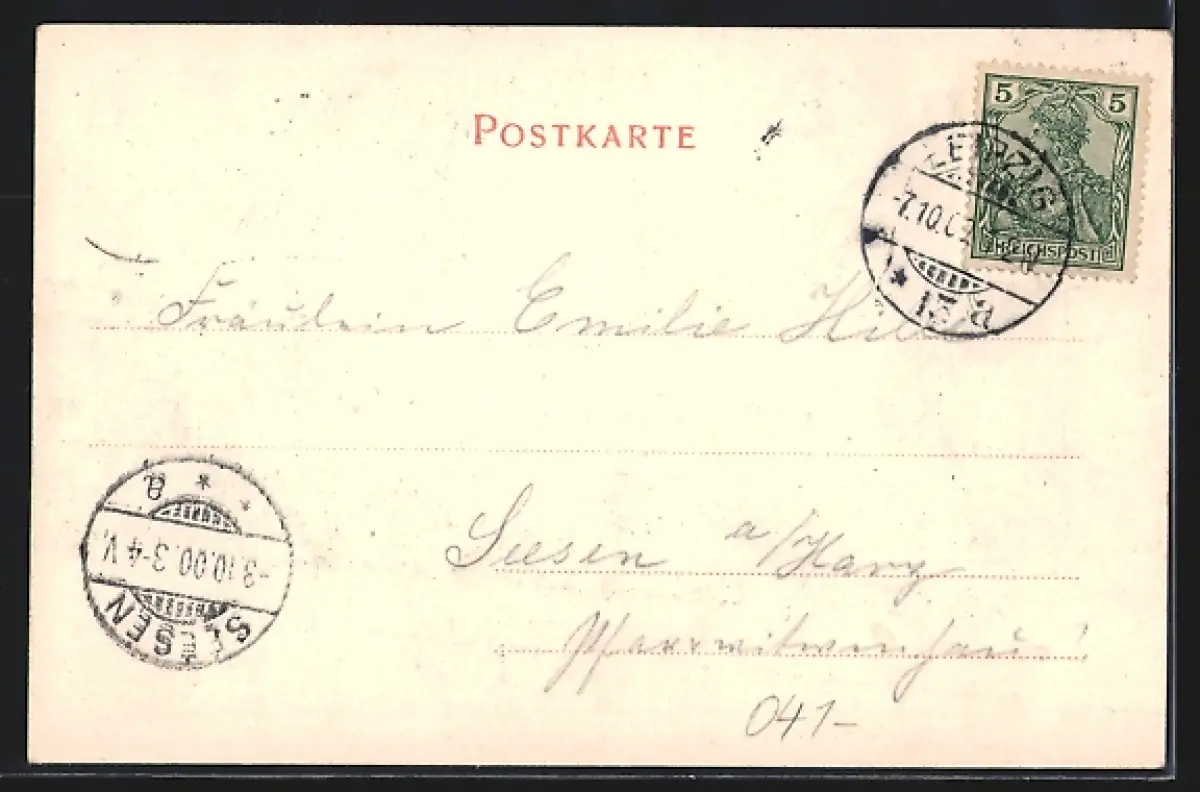 POSTKARTE
5 5
REICHSPOST
LEIPZIG
-7.10.0
Fräulein Emilie
Seesen a/Harz
Pfarrwitwenhaus
SEESEN
-3.10.00.3-4 V.
* * a
041-